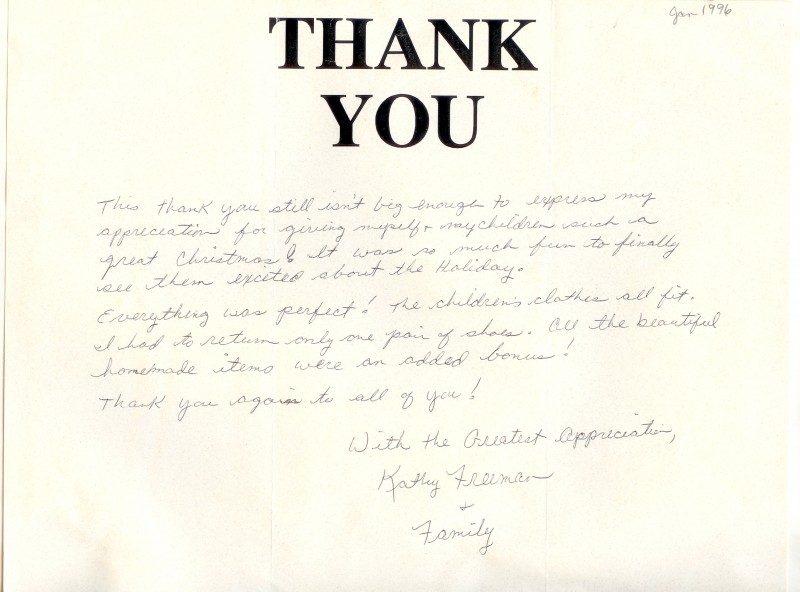 Jan 1996
THANK
YOU
This thank you still isn't big enough to express my
appreciation for giving myself + my children such a
great Christmas! It was so much fun to finally
see them excited about the Holiday.
Everything was perfect! The children's clothes all fit.
I had to return only one pair of shoes. All the beautiful
homemade items were an added bonus!
Thank you again to all of you!
With the Greatest Appreciation,
Kathy Freeman
+
Family